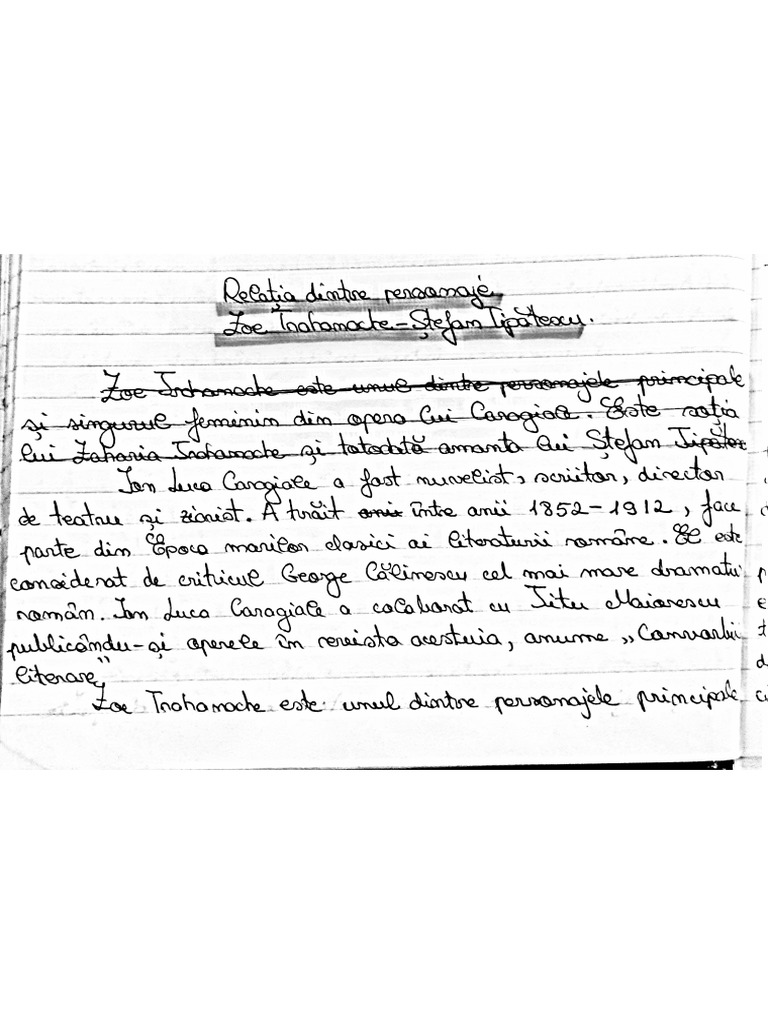 Relația dintre personaje
Zoe Trahanache - Ștefan Tipătescu.
Zoe Trahanache este unul dintre personajele principale
și singurul feminin din opera lui Caragiale. Este soția
lui Zaharia Trahanache și totodată amanta lui Ștefan Tipătes
Ion Luca Caragiale a fost nuvelist, scriitor, director
de teatru și ziarist. A trăit anii între anii 1852-1912, face
parte din Epoca marilor clasici ai literaturii române. El este
considerat de criticul George Călinescu cel mai mare dramatu
român. Ion Luca Caragiale a colaborat cu Titu Maiorescu
publicându-și operele în revista acestuia, anume „Convorbiri
literare”
Zoe Trahanache este unul dintre personajele principale